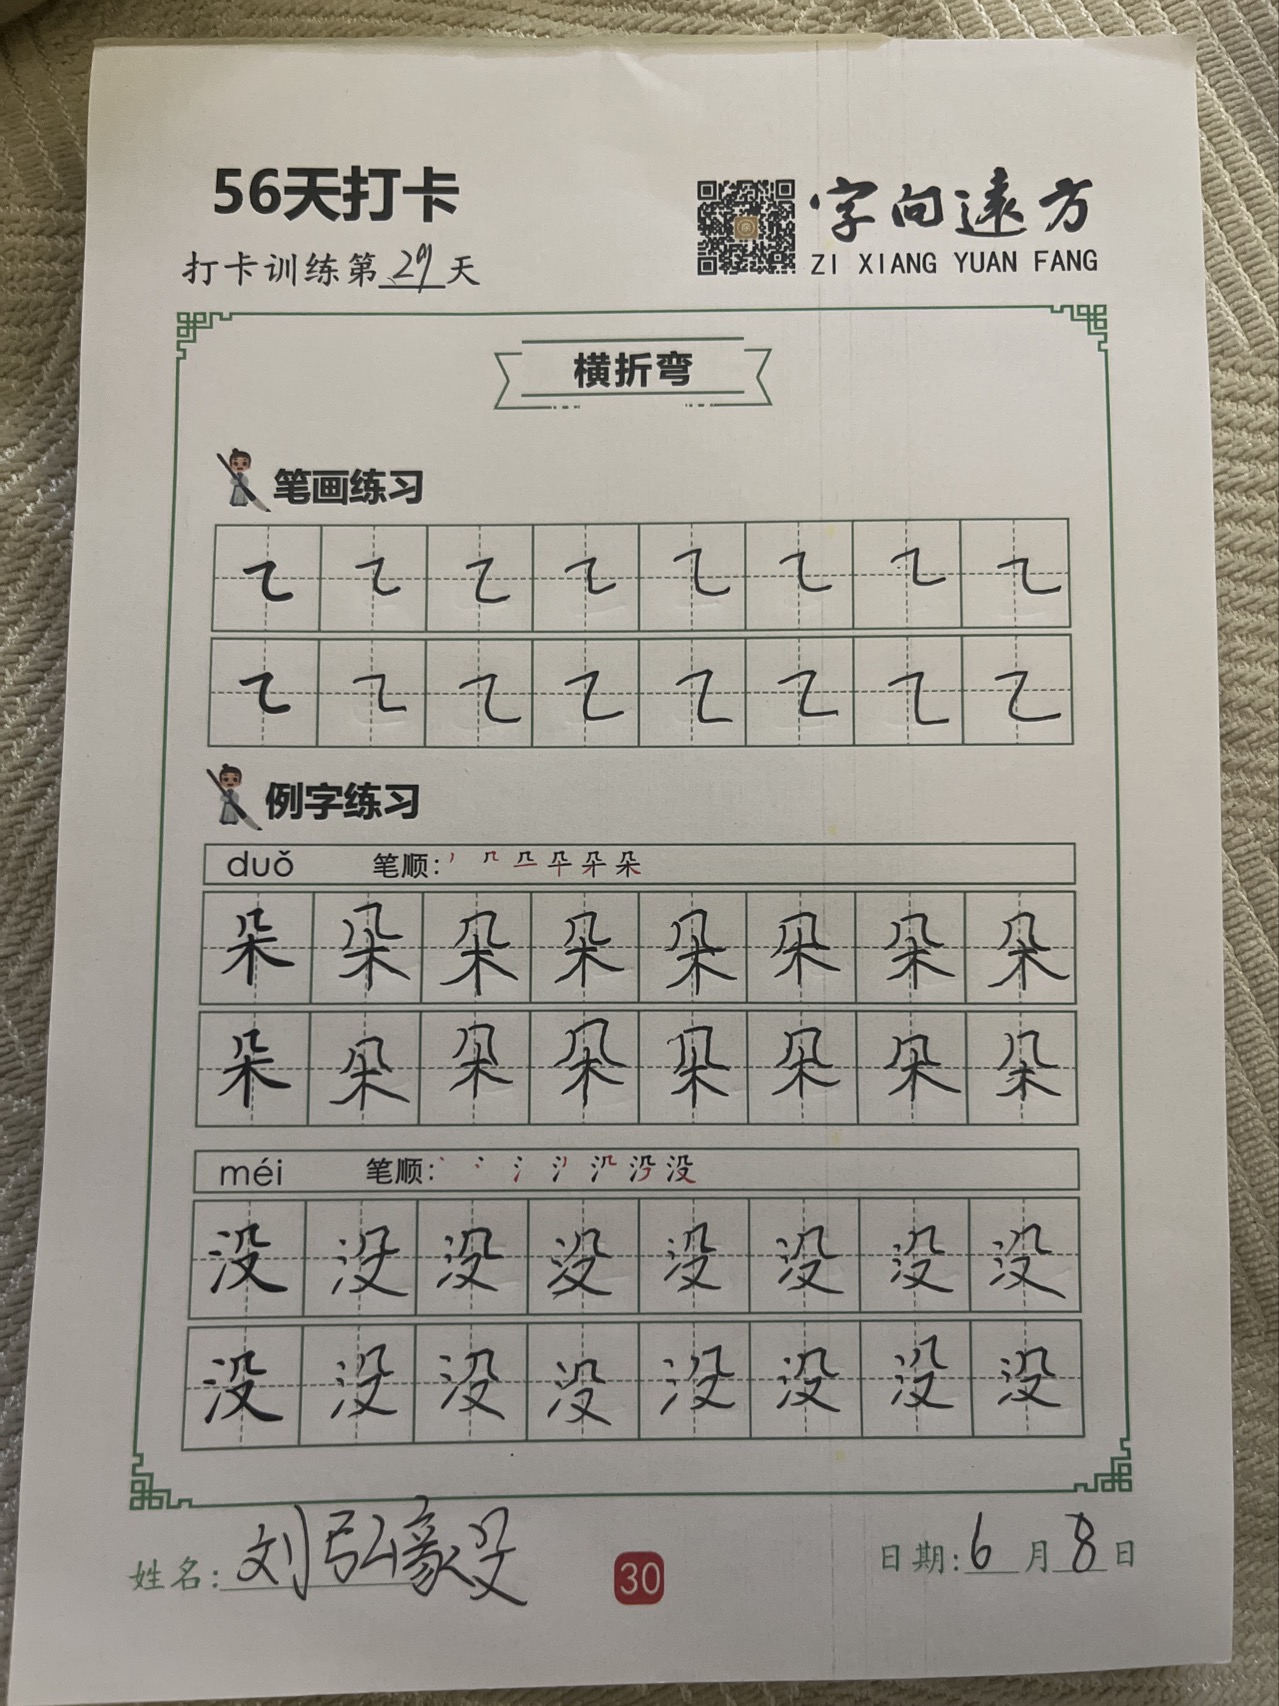 56天打卡
打卡训练第29天
字向遠方
ZI XIANG YUAN FANG
横折弯
笔画练习
㇍ ㇍ ㇍ ㇍ ㇍ ㇍ ㇍ ㇍
㇍ ㇍ ㇍ ㇍ ㇍ ㇍ ㇍ ㇍
例字练习
duǒ 笔顺:
朵 朵 朵 朵 朵 朵 朵 朵
朵 朵 朵 朵 朵 朵 朵 朵
méi 笔顺:
没 没 没 没 没 没 没 没
没 没 没 没 没 没 没 没
姓名:刘弘毅
30
日期:6月8日